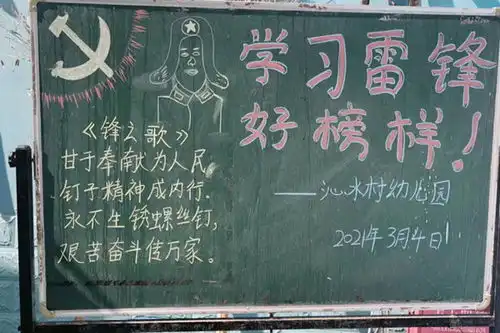 《锋之歌》
甘于奉献为人民
钉子精神成内行.
永不生锈螺丝钉,
艰苦奋斗传万家。
学习雷锋
好榜样!
——沁水村幼儿园
2021年3月4日